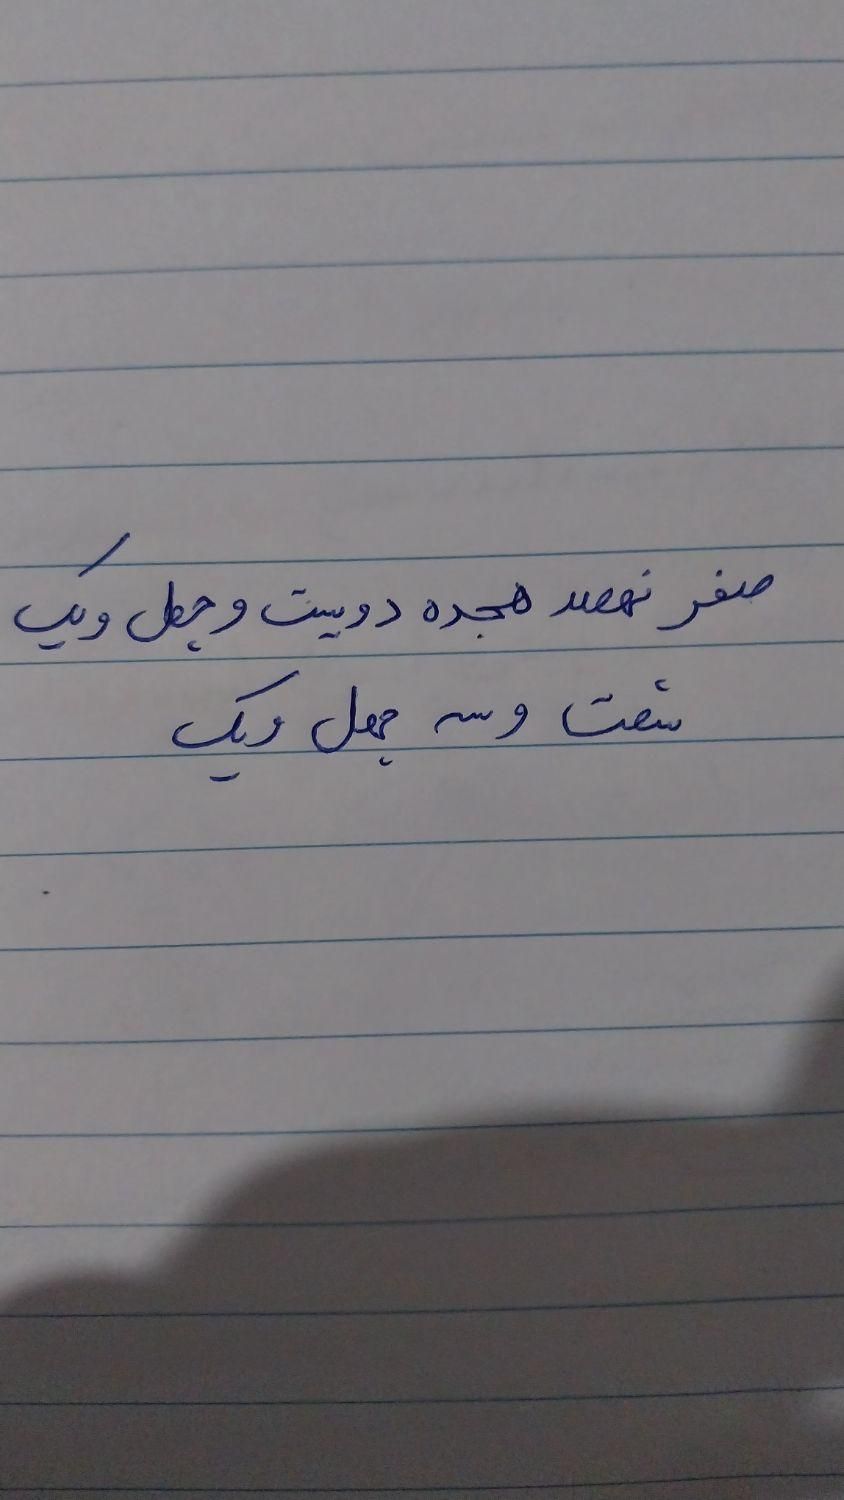 صفر نهصد هجده دویست و چهل ویک
شصت و سه چهل ویک